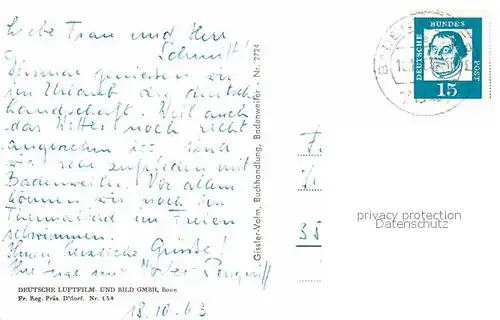 Liebe Frau und Herr
Schmitt!
Diesmal geniessen wir
im Urlaub die deutsche
Landschaft. Weil auch
das Wetter noch recht
angenehm ist, sind
wir sehr zufrieden mit
Badenweiler. Vor allem
können wir noch im
Thermalbad im Freien
schwimmen.
Ihnen herzliche Grüsse!
Ihre
DEUTSCHE LUFTFILM- UND BILD GMBH, Bonn
Fr. Reg. Präs. D'dorf. Nr. 154
18.10.63
Gissler-Volm, Buchhandlung, Badenweiler Nr. 2724
DEUTSCHE BUNDES POST
15
35
privacy protection
Datenschutz